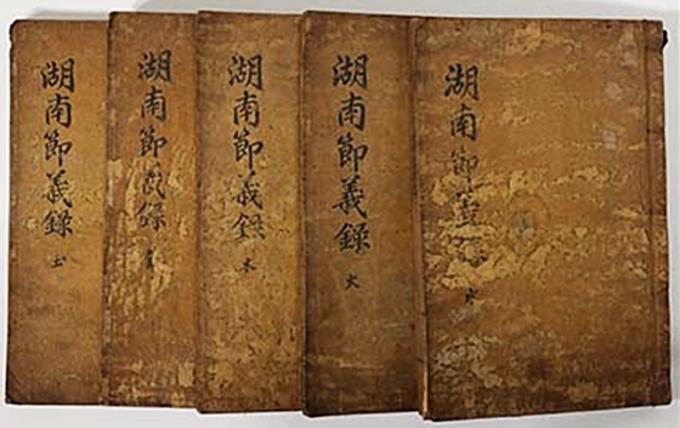 湖南節義
水
湖南節義錄
火
湖南節義錄
木
湖南節義錄
金
湖南節義錄
土